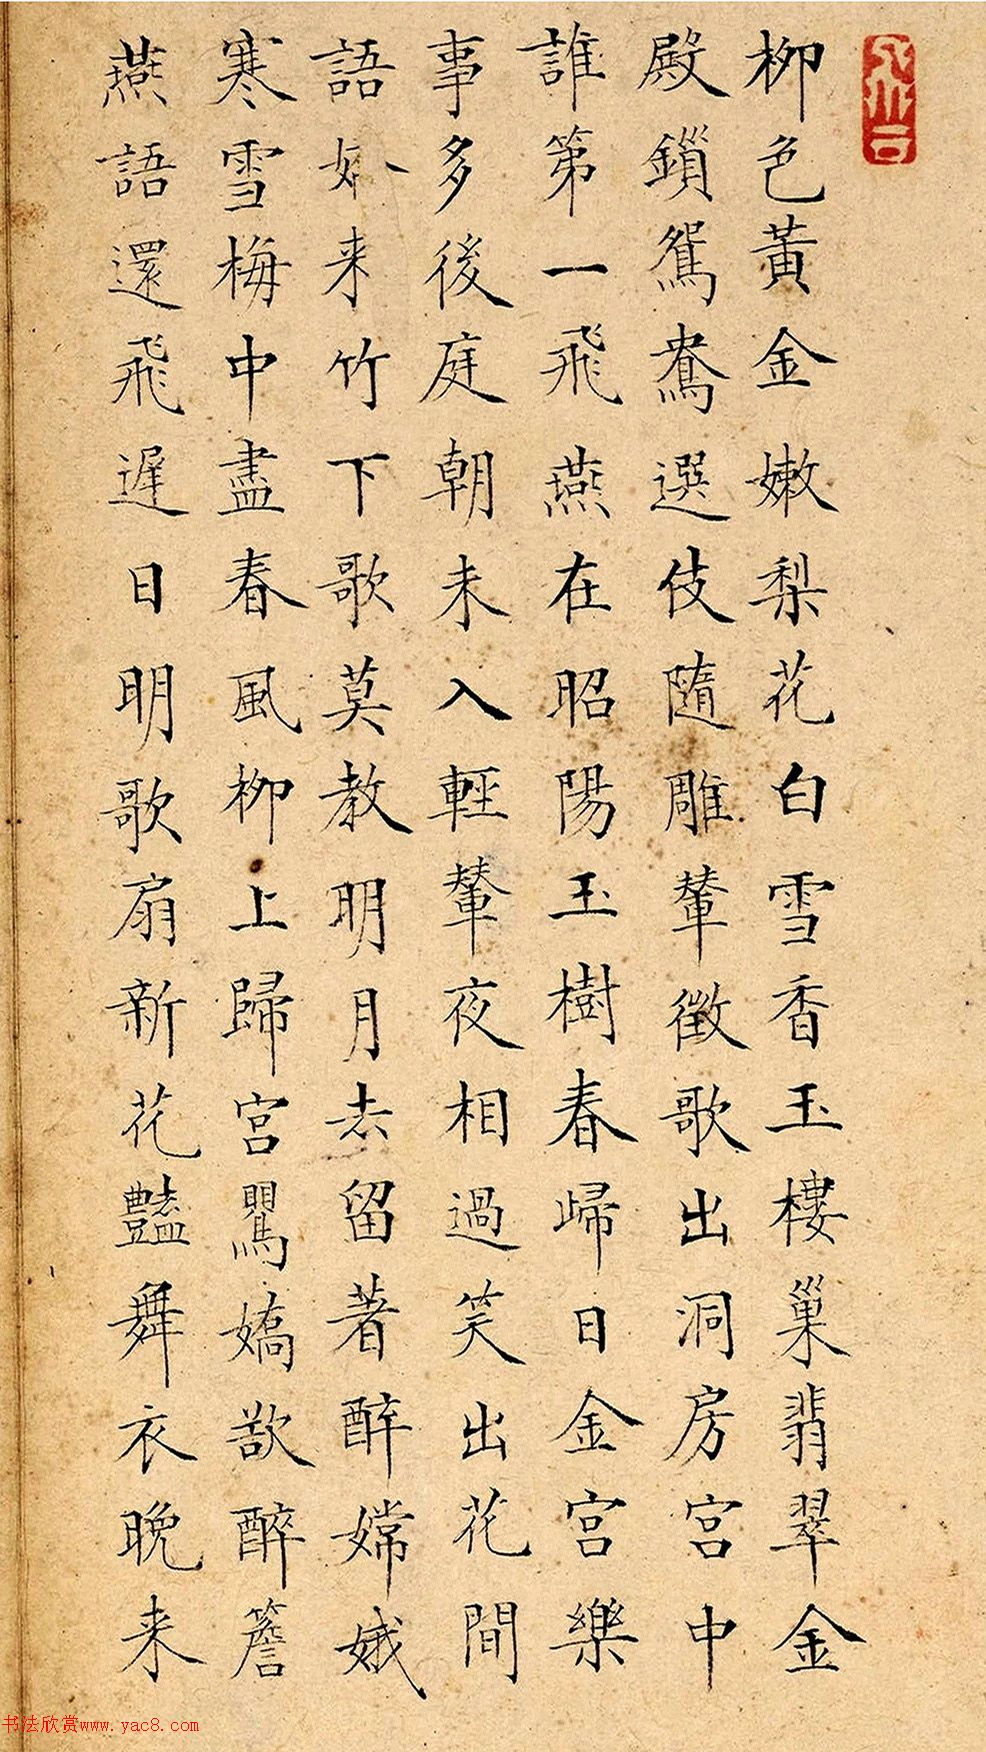 柳色黃金嫩梨花白雪香玉樓巢翡翠金
殿鎖鴛鴦選伎隨雕輦徵歌出洞房宮中
誰第一飛燕在昭陽玉樹春歸日金宮樂
事多後庭朝未入輕輦夜相過笑出花間
語来竹下歌莫教明月去留著醉嫦娥
寒雪梅中盡春風柳上歸宮鸎嬌欲醉簷
燕語還飛遲日明歌扇新花豔舞衣晚来
书法欣赏www.yac8.com